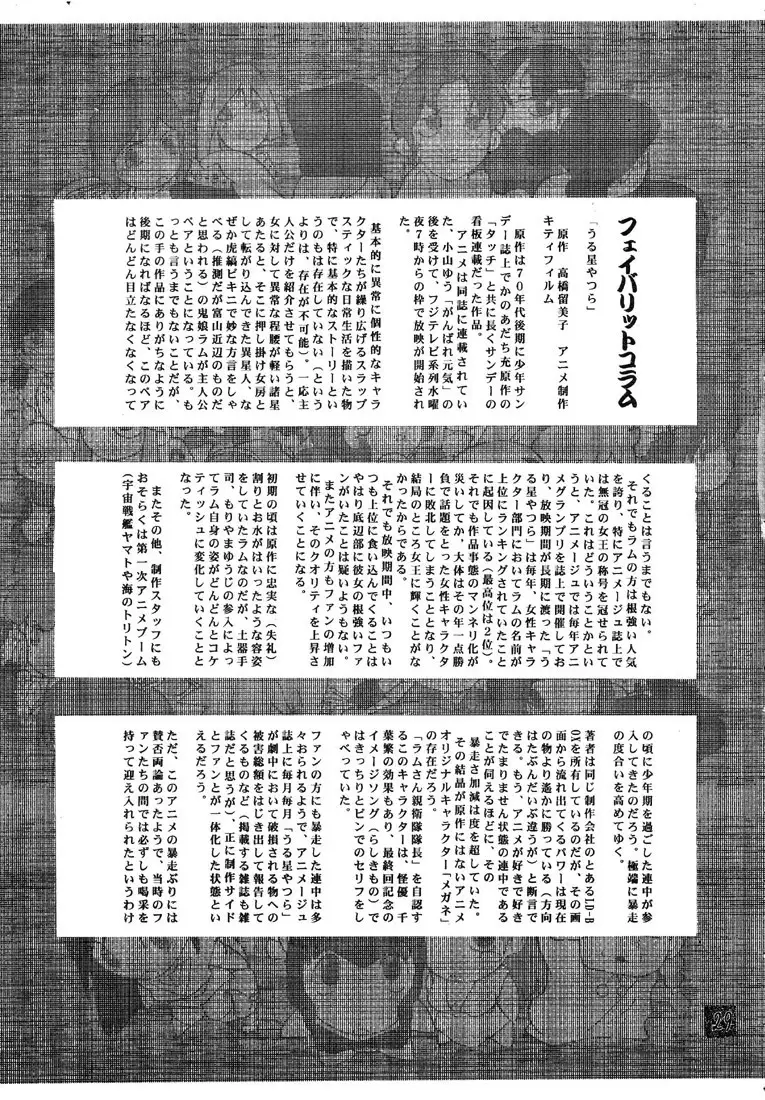 フェイバリットコラム
「うる星やつら」
原作 高橋留美子 アニメ制作
キティフィルム
原作は70年代後期に少年サン
デー誌上でかのあだち充原作の
「タッチ」と共に長くサンデーの
看板連載だった作品。
アニメは同誌に連載されてい
た、小山ゆう「がんばれ元気」の
後を受けて、フジテレビ系列水曜
夜7時からの枠で放映が開始され
た。
基本的に異常に個性的なキャラ
クターたちが繰り広げるスラップ
スティックな日常生活を描いた物
で、特に基本的なストーリーとい
うのもは存在していない(という
よりは、存在が不可能)。一応主
人公だけを紹介させてもらうと、
女に対して異常な程腰が軽い諸星
あたると、そこに押し掛け女房と
して転がり込んできた異星人、な
ぜか虎縞ビキニで妙な方言をしゃ
べる(推測だが富山近辺のものだ
と思われる)の鬼娘ラムが主人公
ペアということになっている。も
っとも言うまでもないことだが、
この手の作品にありがちなように
後期になればなるほど、このペア
はどんどん目立たなくなくなって
くることは言うまでもない。
それでもラムの方は根強い人気
を誇り、特にアニメージュ誌上で
は無冠の女王の称号を冠せられて
いた。これはどういうことかとい
うと、アニメージュでは毎年アニ
メグランプリを誌上で開催してお
り、放映期間が長期に渡った「う
る星やつら」は毎年、女性キャラ
クター部門においてラムの名前が
上位にランキングされていたこと
に起因している(最高位は2位)。
それでも作品事態のマンネリ化が
災いしてか、大体はその年一点勝
負で話題をとった女性キャラクタ
ーに敗北してしまうこととなり、
結局のところ女王に輝くことがな
かったからである。
それでも放映期間中、いつもい
つも上位に食い込んでくることは
やはり底辺部に彼女の根強いファ
ンがいたことは疑いようもない。
またアニメの方もファンの増加
に伴い、そのクオリティを上昇さ
せていくことになる。
初期の頃は原作に忠実な(失礼)
割りとお水がはいったような容姿
をしていたラムなのだが、土器手
司、もりやまゆうじの参入によっ
てラム自身の姿がどんどんとコケ
ティッシュに変化していくことと
なった。
またその他、制作スタッフにも
おそらくは第一次アニメブーム
(宇宙戦艦ヤマトや海のトリトン)
の頃に少年期を過ごした連中が参
入してきたのだろう。極端に暴走
の度合いを高めてゆく。
著者は同じ制作会社のとあるLD-B
OXを所有しているのだが、その画
面から流れ出てくるパワーは現在
の物より遙かに勝っている(方向
はたぶんだいぶ違うが)と断言で
きる。もう、アニメが好きで好き
でたまりません状態の連中である
ことが伺えるほどに、その
暴走さ加減は度を超していた。
その結晶が原作にはないアニメ
オリジナルキャラクター「メガネ」
の存在だろう。
「ラムさん親衛隊隊長」を自認す
るこのキャラクターは、怪優 千
葉繁の効果もあり、最終回記念の
イメージソング(らしきもの)で
はきっちりとピンでのセリフをし
ゃべっていた。
ファンの方にも暴走した連中は多
々おられるようで、アニメージュ
誌上に毎月毎月「うる星やつら」
が劇中において破損される物への
被害総額をはじき出して報告して
くるものなど(掲載する雑誌も雑
誌だと思うが)、正に制作サイド
とファンとが一体化した状態とい
えるだろう。
ただ、このアニメの暴走ぶりには
賛否両論あったようで、当時のフ
ァンたちの間では必ずしも喝采を
持って迎え入れられたというわけ
29